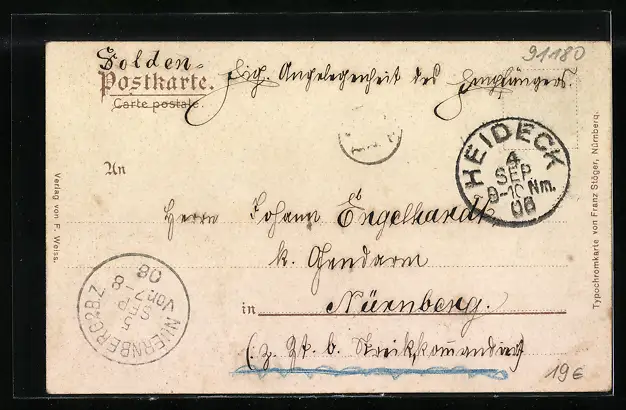 91180
Solden=
Postkarte. Eig. Angelegenheit des Empfängers.
Carte postale.
HEIDECK
4
SEP
9-10 Nm.
08
An
Herrn Johann Engelhardt
k. Gendarm
in Nürnberg.
(z. Zt. b. Streikkommando)
NUERNBERG 2 B.Z.
5
SEP
Vor 7-8
08
Verlag von F. Weiss.
Typochromkarte von Franz Stöger, Nürnberg.
19€